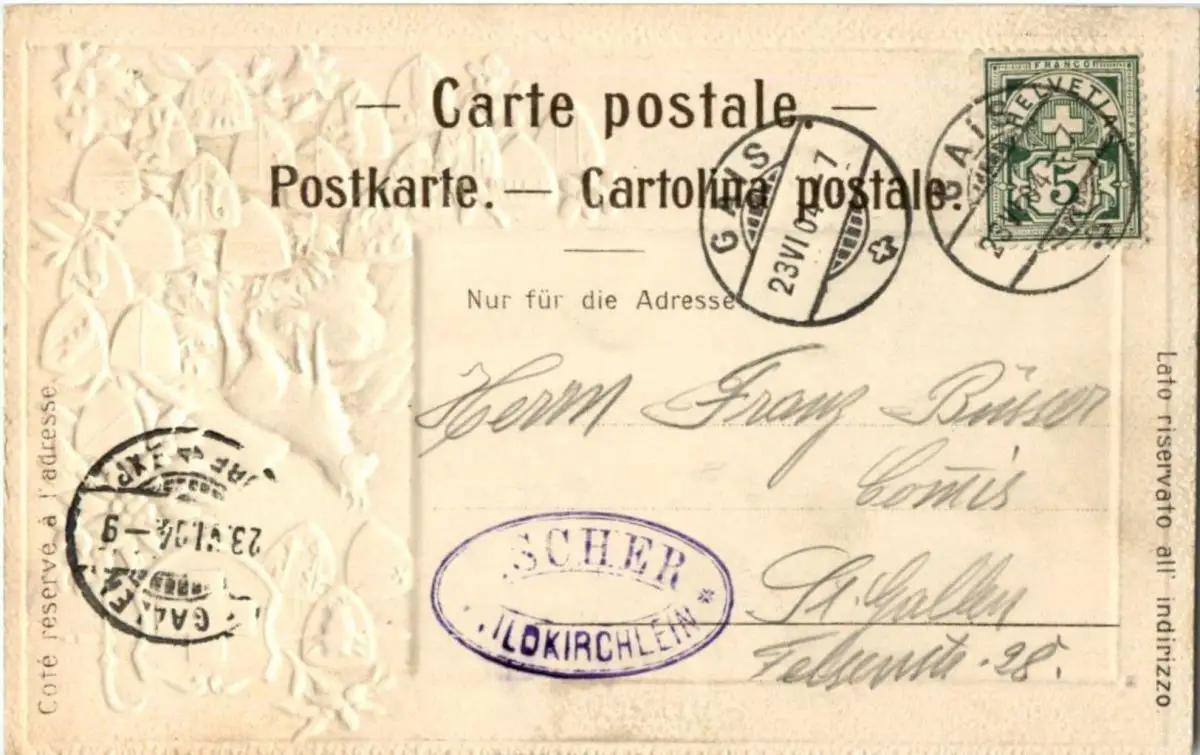 — Carte postale. —
Postkarte. — Cartolina postale.
Nur für die Adresse
Côté réservé à l'adresse.
Lato riservato all' indirizzo.
FRANCO
HELVETIA
5
GAIS
23 VI 04
GAIS
23 VI 04 - 7
Herrn Franz Büsser
Comis
St. Gallen
28.
23.VI.04 - 9
SCHER
ILDKIRCHLEIN